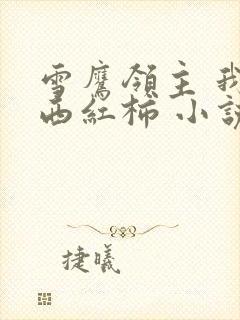 雪鷹領主 我
西紅柿 小説
捷曦